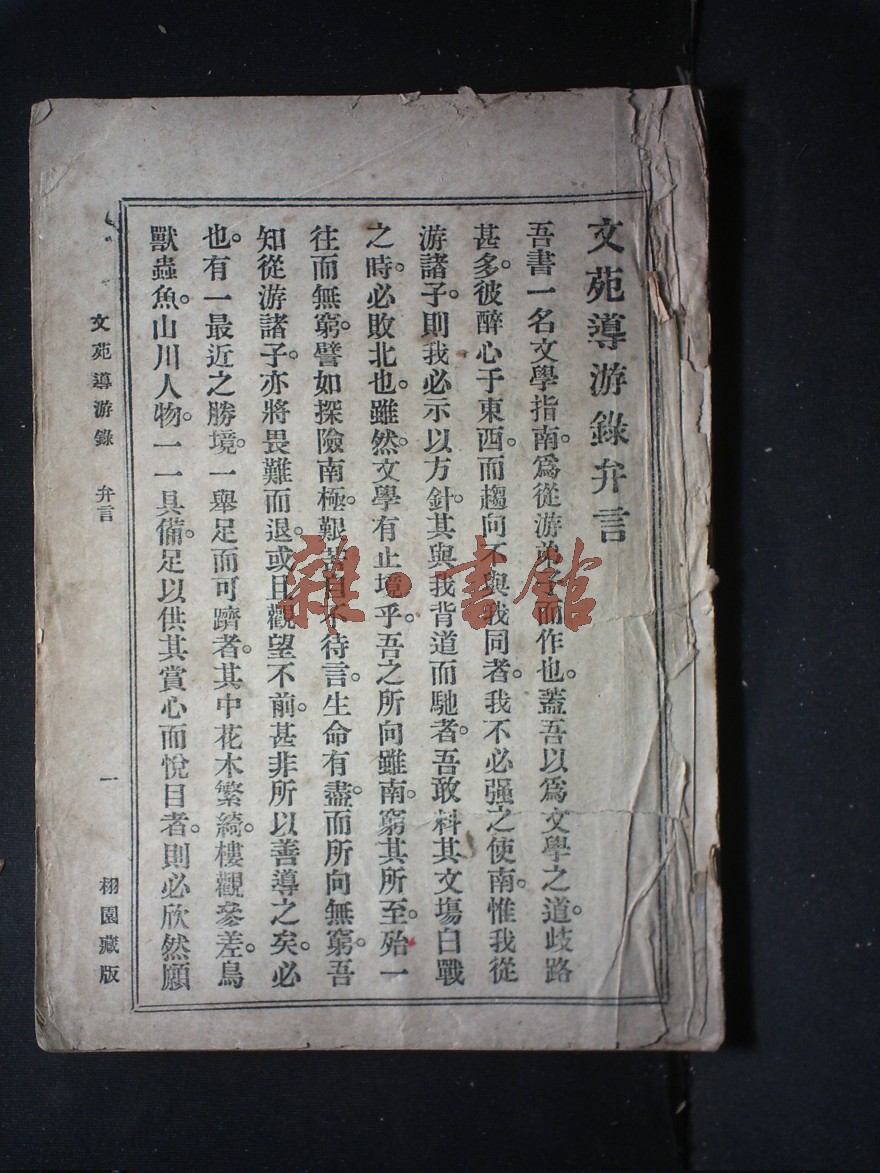 文苑導游錄弁言
吾書一名文學指南。爲從游弟子而作也。蓋吾以爲文學之道。歧路
甚多。彼醉心于東西。而趨向不與我同者。我不必强之使南。惟我從
游諸子。則我必示以方針。其與我背道而馳者。吾敢料其文場白戰
之時。必敗北也。雖然。文學有止境乎。吾之所向雖南。窮其所至。殆一
往而無窮。譬如探險南極。艱苦自不待言。生命有盡。而所向無窮。吾
知從游諸子。亦將畏難而退。或且觀望不前。甚非所以善導之矣。必
也。有一最近之勝境。一舉足而可躋者。其中花木繁綺。樓觀參差。鳥
獸蟲魚。山川人物。一一具備。足以供其賞心而悅目者。則必欣然願
文苑導游錄 弁言 一 栩園藏版
雜·書館